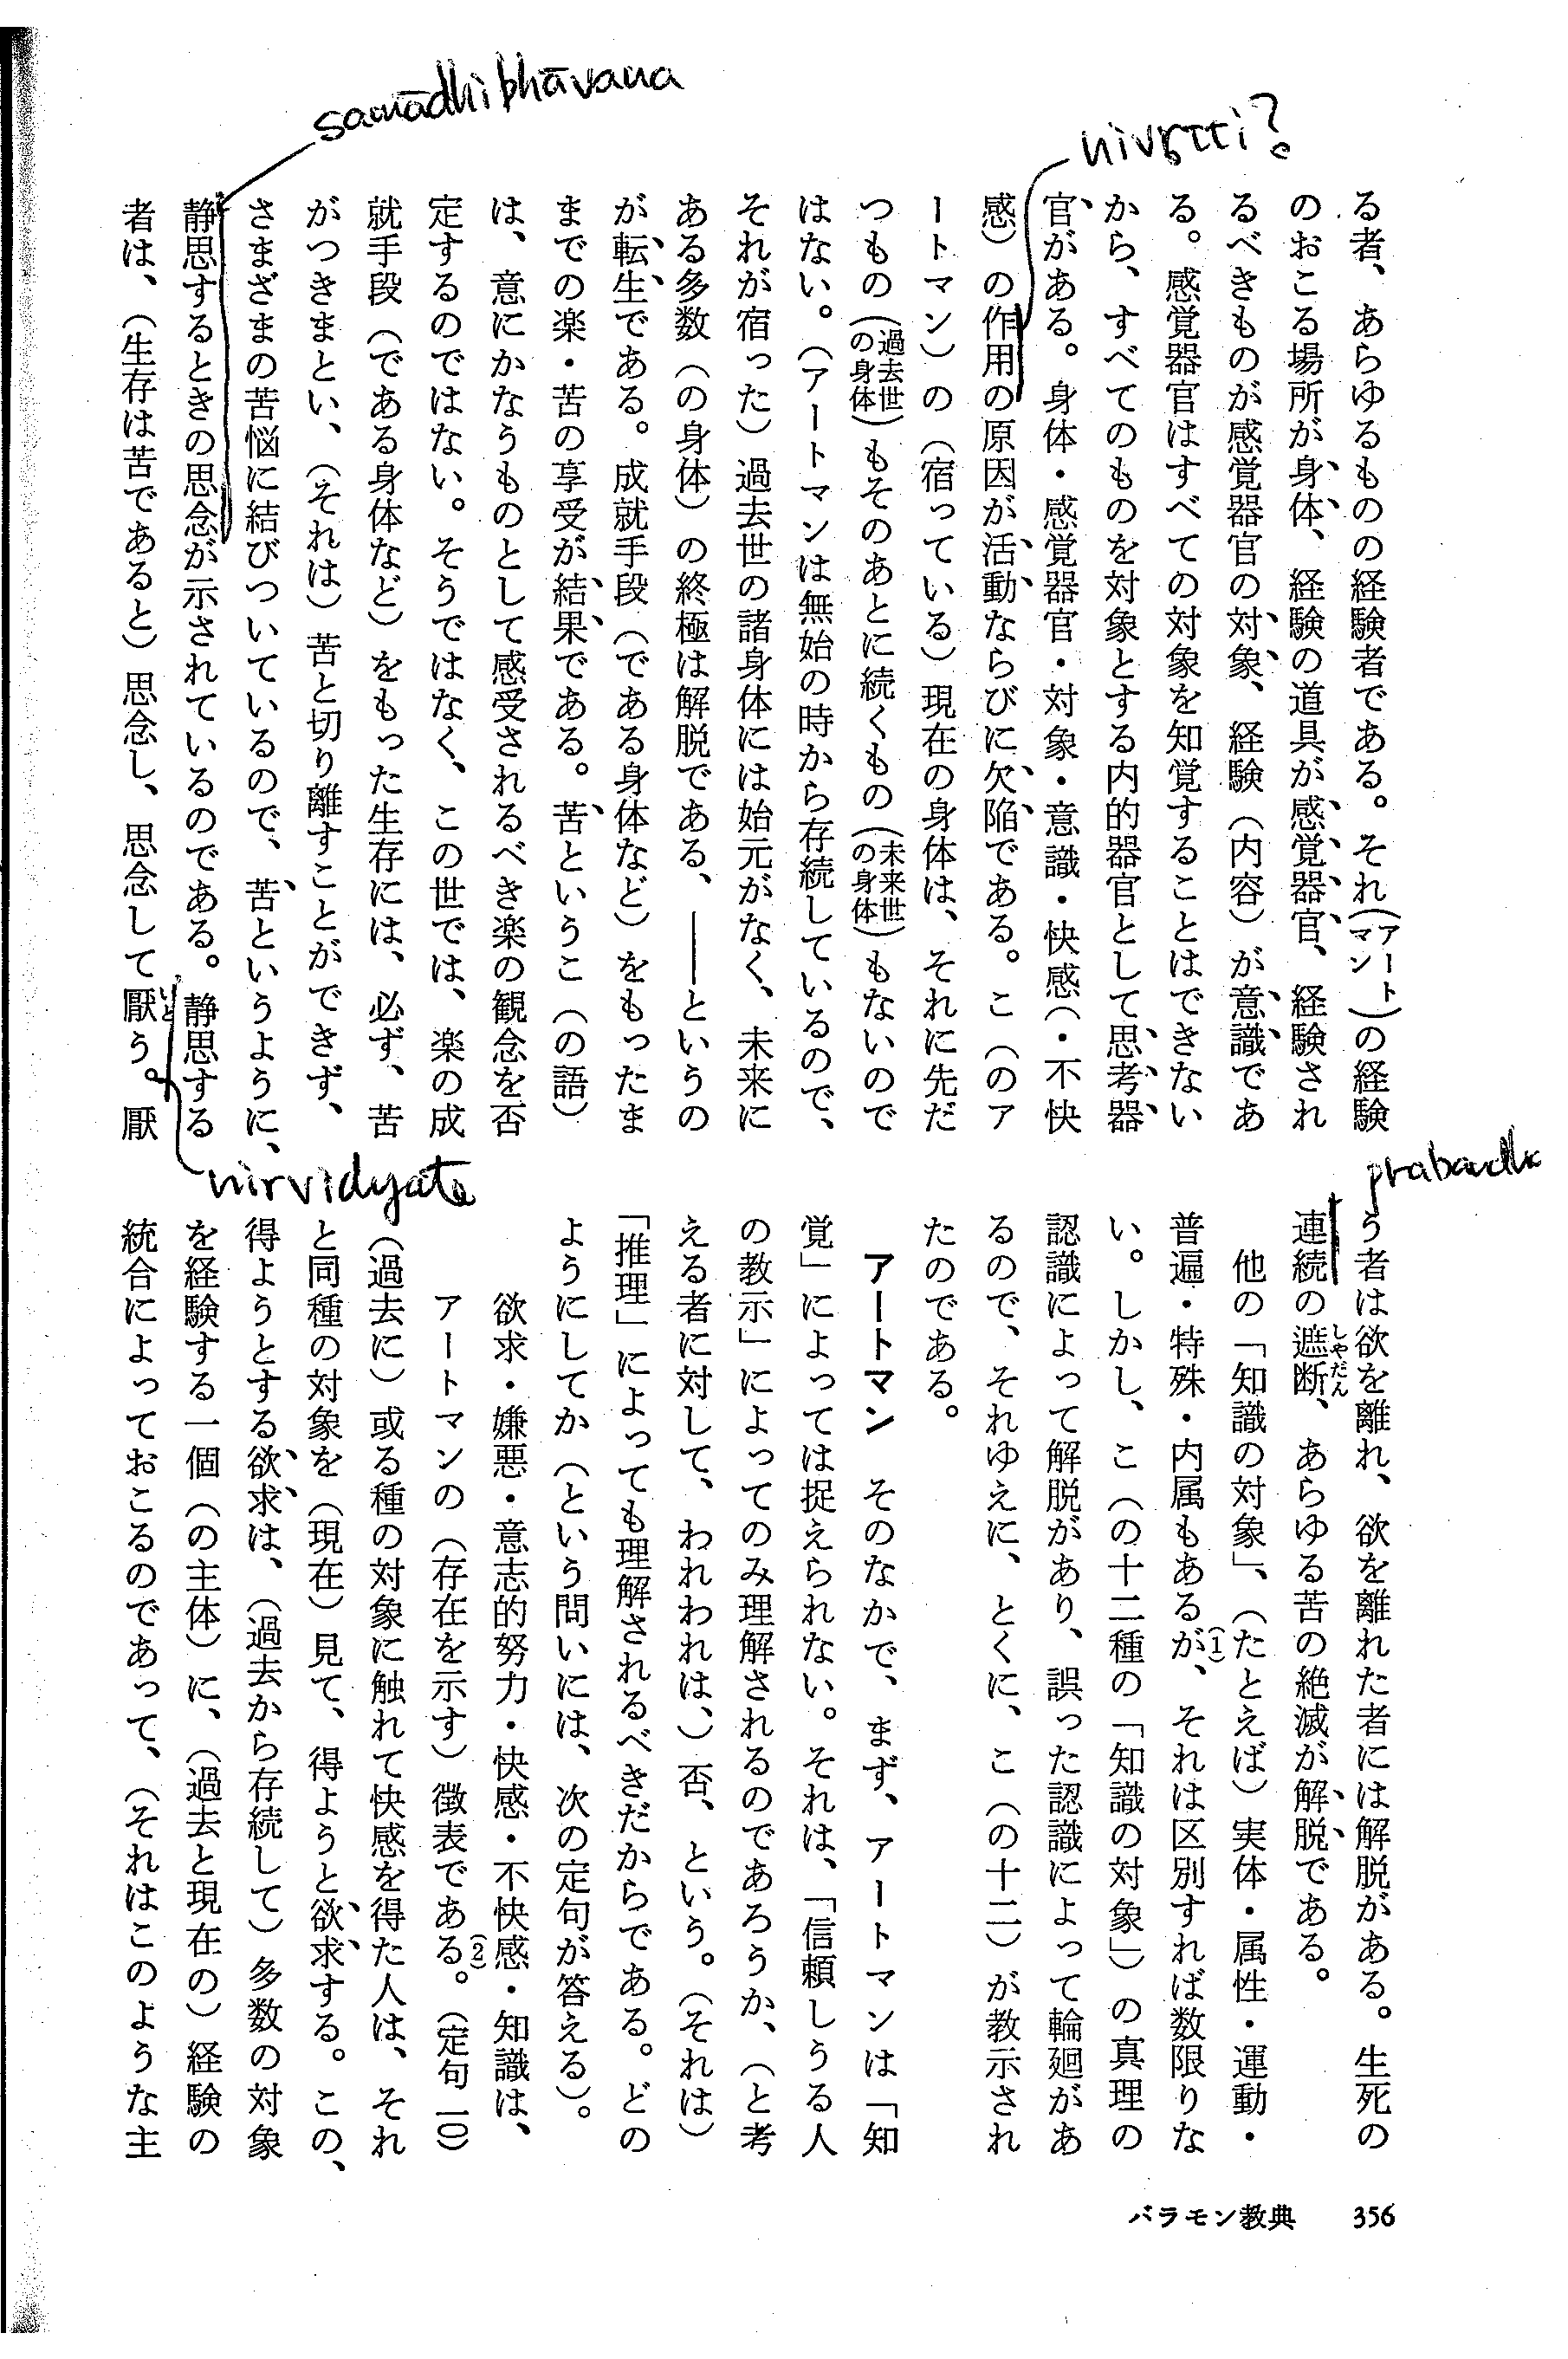 samādhibhāvana
nivṛtti?
る者、あらゆるものの経験者である。それ(アートマン)の経験
のおこる場所が身体、経験の道具が感覚器官、経験され
るべきものが感覚器官の対象、経験(内容)が意識であ
る。感覚器官はすべての対象を知覚することはできない
から、すべてのものを対象とする内的器官として思考器
官がある。身体・感覚器官・対象・意識・快感(・不快
感)の作用の原因が活動ならびに欠陥である。こ(のア
ートマン)の(宿っている)現在の身体は、それに先だ
つもの(過去世の身体)もそのあとに続くもの(未来世の身体)もないので
はない。(アートマンは無始の時から存続しているので、
それが宿った)過去世の諸身体には始元がなく、未来に
ある多数(の身体)の終極は解脱である、――というの
が転生である。成就手段(である身体など)をもったま
までの楽・苦の享受が結果である。苦というこ(の語)
は、意にかなうものとして感受されるべき楽の観念を否
定するのではない。そうではなく、この世では、楽の成
就手段(である身体など)をもった生存には、必ず、苦
がつきまとい、(それは)苦と切り離すことができず、
さまざまの苦悩に結びついているので、苦というように、
静思するときの思念が示されているのである。静思する
者は、(生存は苦であると)思念し、思念して厭いとう。厭
nirvidyate
prabandha
う者は欲を離れ、欲を離れた者には解脱がある。生死の
連続の遮断しやだん、あらゆる苦の絶滅が解脱である。
他の「知識の対象」、(たとえば)実体・属性・運動・
普遍・特殊・内属もあるが、(1)それは区別すれば数限りな
い。しかし、こ(の十二種の「知識の対象」)の真理の
認識によって解脱があり、誤った認識によって輪廻があ
るので、それゆえに、とくに、こ(の十二)が教示され
たのである。
アートマン そのなかで、まず、アートマンは「知
覚」によっては捉えられない。それは、「信頼しうる人
の教示」によってのみ理解されるのであろうか、(と考
える者に対して、われわれは、)否、という。(それは)
「推理」によっても理解されるべきだからである。どの
ようにしてか(という問いには、次の定句が答える)。
欲求・嫌悪・意志的努力・快感・不快感・知識は、
アートマンの(存在を示す)徴表である。(2)(定句一〇)
(過去に)或る種の対象に触れて快感を得た人は、それ
と同種の対象を(現在)見て、得ようと欲求する。この、
得ようとする欲求は、(過去から存続して)多数の対象
を経験する一個(の主体)に、(過去と現在の)経験の
統合によっておこるのであって、(それはこのような主
バラモン教典 356